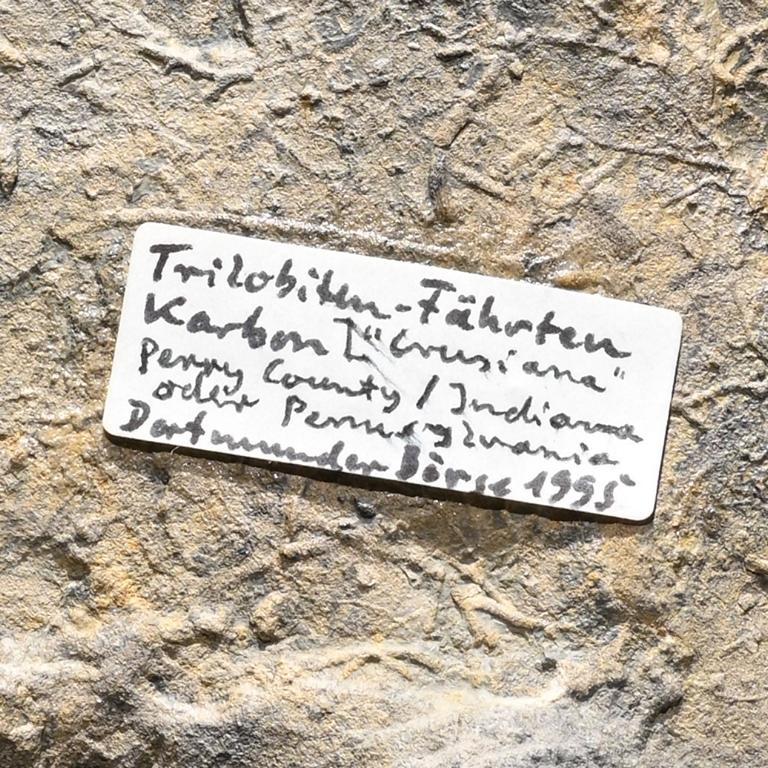 Trilobiten-Fährten
Karbon "Crusiana"
Perry County / Indiana
oder Pennsylvania
Dortmunder Börse 1995